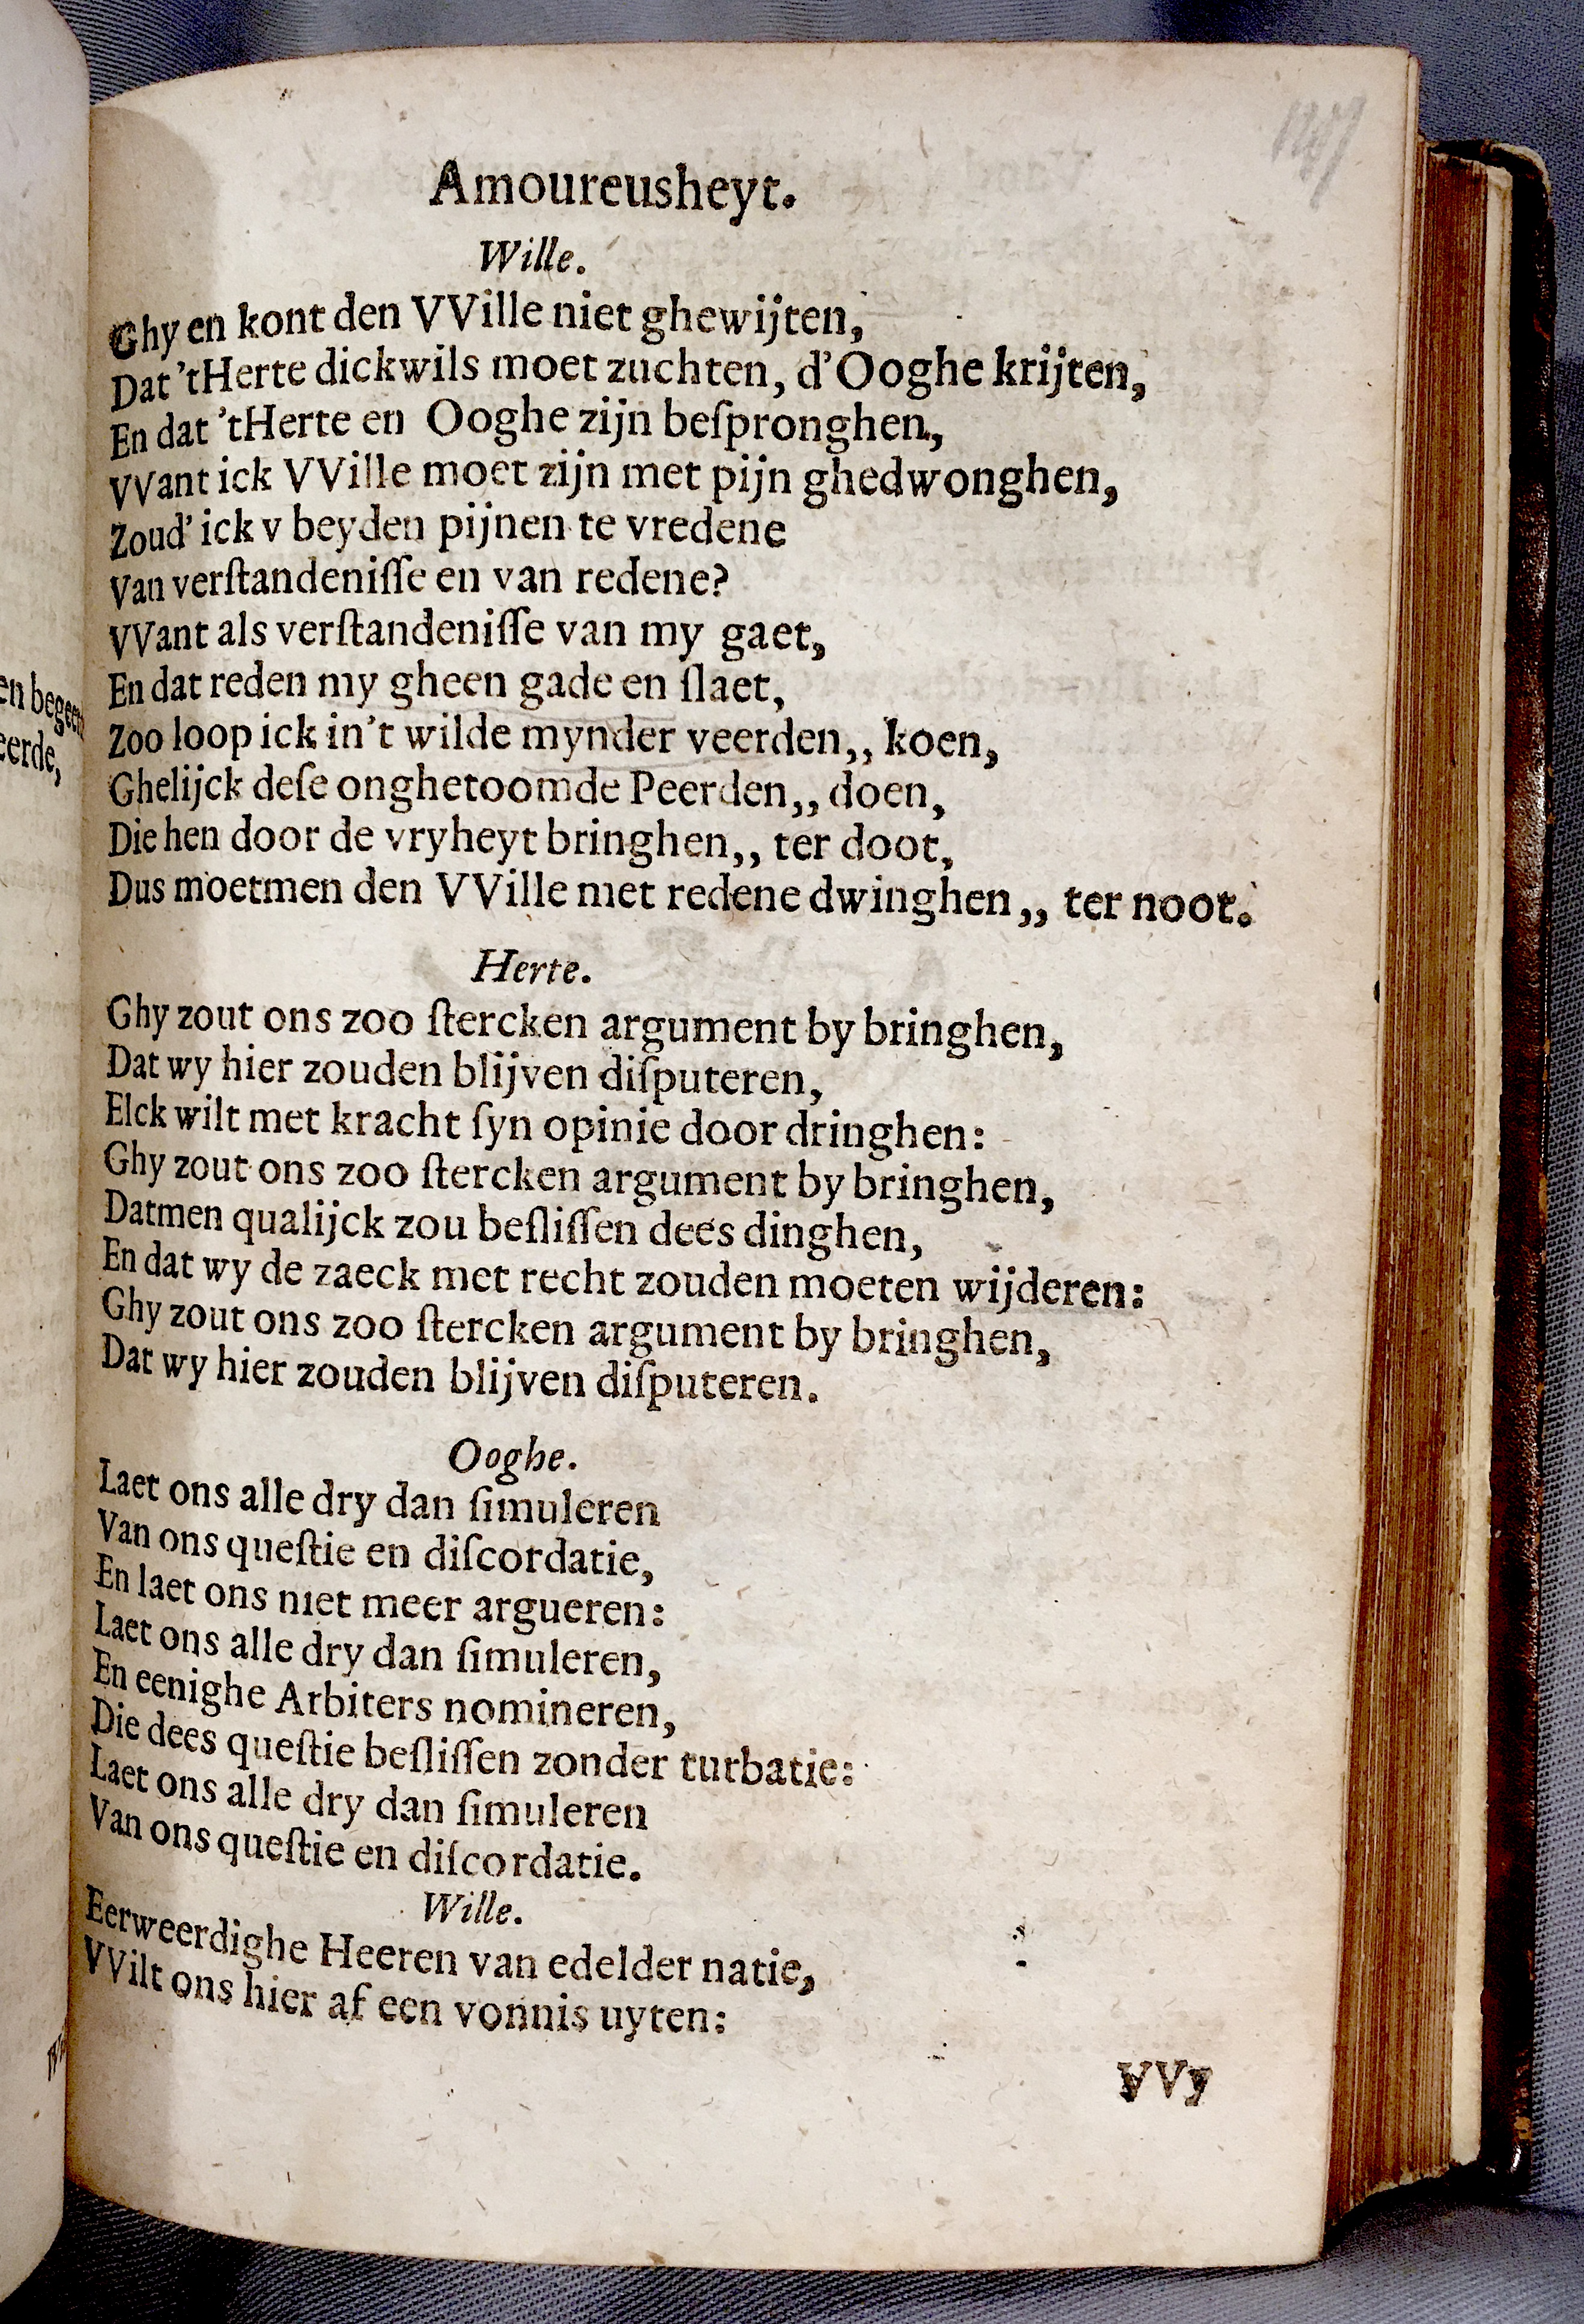 Amoureusheyt.
Wille.
Ghy en kont den VVille niet ghewijten,
Dat 'tHerte dickwils moet zuchten, d'Ooghe krijten,
En dat 'tHerte en Ooghe zijn beſpronghen,
VVant ick VVille moet zijn met pijn ghedwonghen,
Zoud' ick v beyden pijnen te vredene
Van verſtandeniſſe en van redene?
VVant als verſtandeniſſe van my gaet,
En dat reden my gheen gade en ſlaet,
Zoo loop ick in't wilde mynder veerden,, koen,
Ghelijck deſe onghetoomde Peerden,, doen,
Die hen door de vryheyt bringhen,, ter doot,
Dus moetmen den VVille met redene dwinghen,, ter noot.
Herte.
Ghy zout ons zoo ſtercken argument by bringhen,
Dat wy hier zouden blijven diſputeren,
Elck wilt met kracht ſyn opinie door dringhen:
Ghy zout ons zoo ſtercken argument by bringhen,
Datmen qualijck zou beſliſſen dees dinghen,
En dat wy de zaeck met recht zouden moeten wijderen:
Ghy zout ons zoo ſtercken argument by bringhen,
Dat wy hier zouden blijven diſputeren.
Ooghe.
Laet ons alle dry dan ſimuleren
Van ons queſtie en diſcordatie,
En laet ons niet meer argueren:
Laet ons alle dry dan ſimuleren,
En eenighe Arbiters nomineren,
Die dees queſtie beſliſſen zonder turbatie:
Laet ons alle dry dan ſimuleren
Van ons queſtie en diſcordatie.
Wille.
Eerweerdighe Heeren van edelder natie,
VVilt ons hier af een vonnis uyten:
VVy